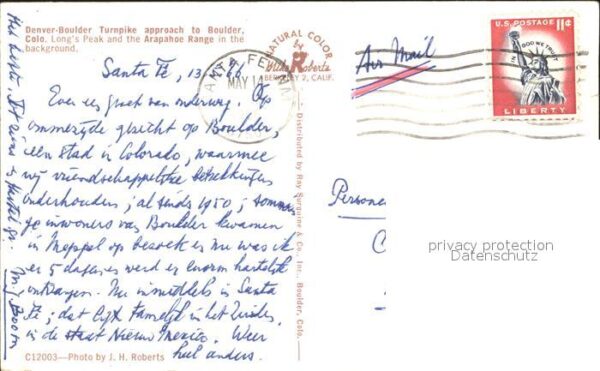 Denver-Boulder Turnpike approach to Boulder,
Colo. Long's Peak and the Arapahoe Range in the
background.
Santa Fé, 13
Even een groet van onderweg. Op
ommezijde gezicht op Boulder,
een stad in Colorado, waarmee
wij vriendschappelijke betrekkingen
onderhouden; al sinds 1950; sommige
inwoners van Boulder kwamen
in Meppel op bezoek en nu was ik
er 5 dagen en werd er enorm hartelijk
ontvangen. Nu inmiddels in Santa
Fé; dat ligt tamelijk in het Zuiden,
in de staat Nieuw Mexico. Weer
heel anders.
C12003—Photo by J. H. Roberts
Het beste.
Boom
Distributed by Ray Surguine & Co., Inc., Boulder, Colo.
NATURAL COLOR
Mike Roberts
BERKELEY 2, CALIF.
SANTA FE
MAY 14
Air Mail
U.S. POSTAGE 11¢
IN GOD WE TRUST
LIBERTY
privacy protection
Datenschutz